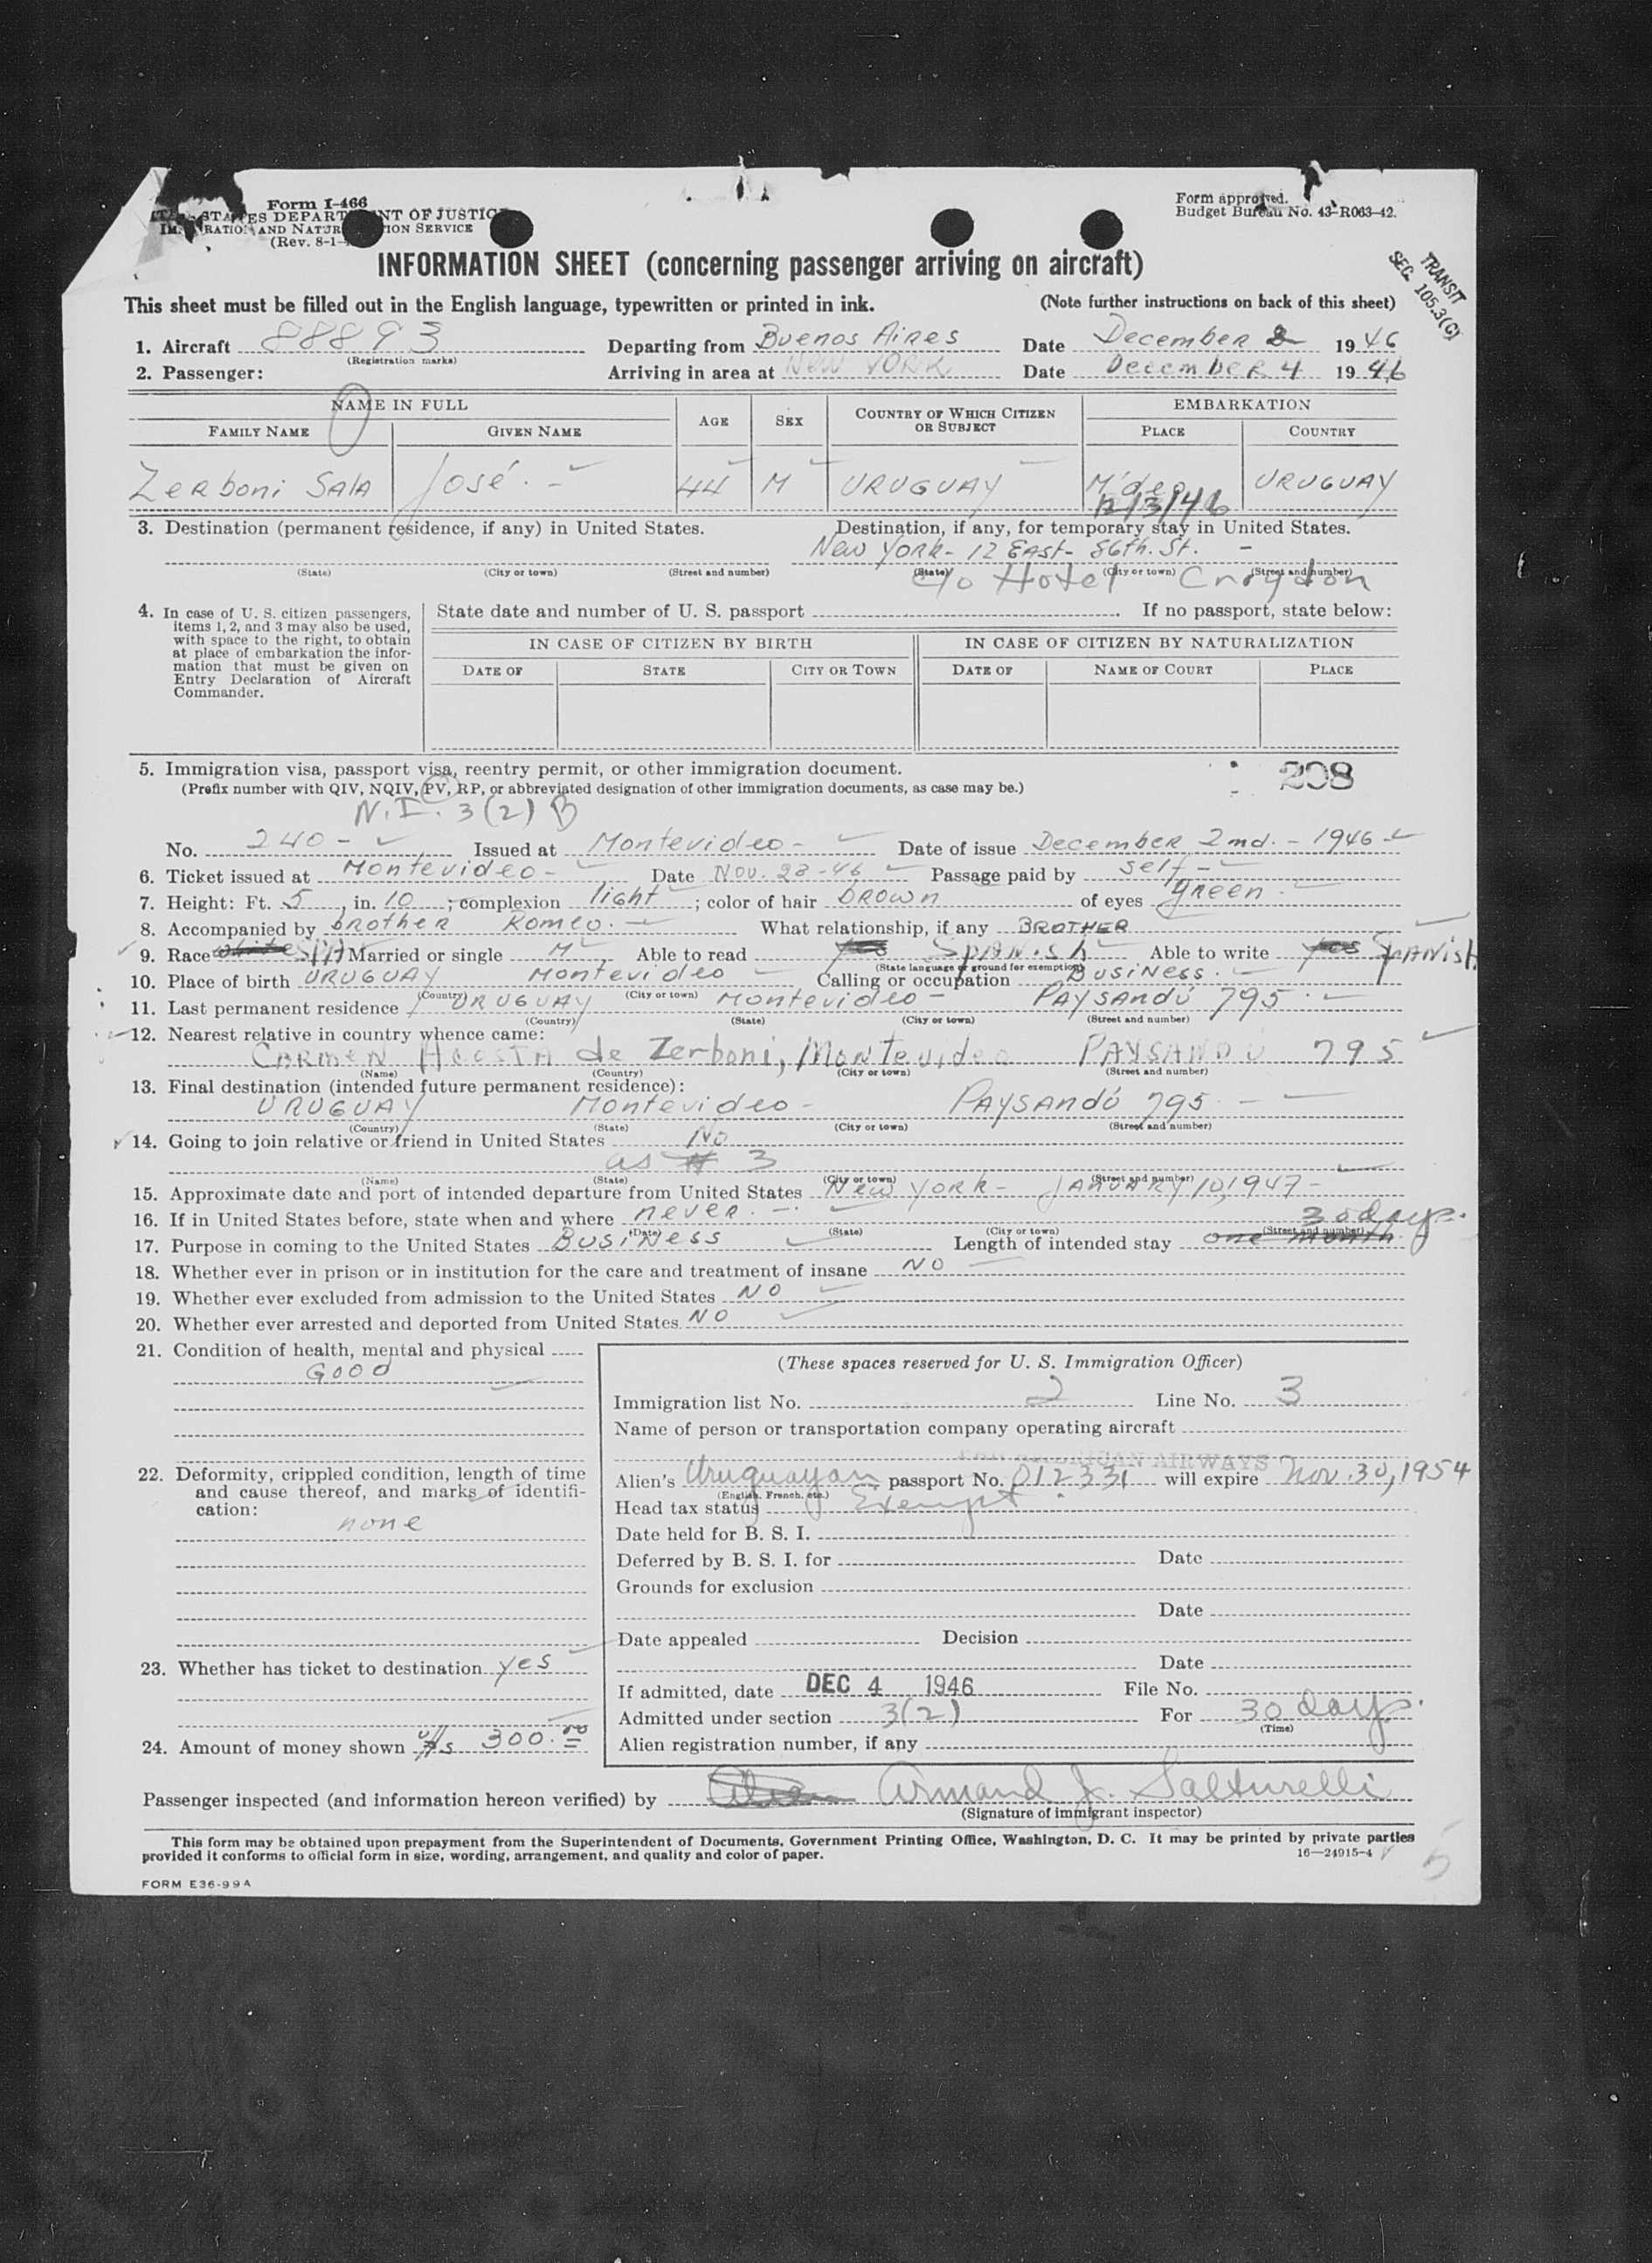 Form I-466
STATES DEPARTMENT OF JUSTICE
IMMIGRATION AND NATURALIZATION SERVICE
(Rev. 8-1-
Form approved.
Budget Bureau No. 43-R063-42.
TRANSIT
SEC. 105.3(C)
INFORMATION SHEET (concerning passenger arriving on aircraft)
This sheet must be filled out in the English language, typewritten or printed in ink. (Note further instructions on back of this sheet)
1. Aircraft 88893 Departing from Buenos Aires Date December 2 1946
(Registration marks)
2. Passenger: Arriving in area at New York Date December 4 1946
NAME IN FULL AGE SEX COUNTRY OF WHICH CITIZEN OR SUBJECT EMBARKATION
FAMILY NAME GIVEN NAME PLACE COUNTRY
Zerboni Sala José. - 44 M URUGUAY M'deo URUGUAY
12/3/46
3. Destination (permanent residence, if any) in United States. Destination, if any, for temporary stay in United States.
New York - 12 East - 86th. St. -
(State) (City or town) (Street and number) (State) (City or town) (Street and number)
c/o Hotel Croydon
4. In case of U. S. citizen passengers, items 1, 2, and 3 may also be used, with space to the right, to obtain at place of embarkation the information that must be given on Entry Declaration of Aircraft Commander.
State date and number of U. S. passport If no passport, state below:
IN CASE OF CITIZEN BY BIRTH IN CASE OF CITIZEN BY NATURALIZATION
DATE OF STATE CITY OR TOWN DATE OF NAME OF COURT PLACE
5. Immigration visa, passport visa, reentry permit, or other immigration document.
208
(Prefix number with QIV, NQIV, PV, RP, or abbreviated designation of other immigration documents, as case may be.)
N.I. 3(2) B
No. 240 - Issued at Montevideo - Date of issue December 2nd. - 1946 -
6. Ticket issued at Montevideo - Date Nov. 28-46 Passage paid by self -
7. Height: Ft. 5, in. 10; complexion light; color of hair brown of eyes green -
8. Accompanied by brother Romeo. - What relationship, if any BROTHER
9. Race white Married or single M Able to read yes SPANish Able to write yes SPANish
(State language or ground for exemption)
10. Place of birth URUGUAY Montevideo Calling or occupation Business. -
(Country) (City or town)
11. Last permanent residence URUGUAY Montevideo - PAYSANDÚ 795. -
(Country) (State) (City or town) (Street and number)
12. Nearest relative in country whence came:
CARMEN ACOSTA de Zerboni, Montevideo PAYSANDU 795
(Name) (Country) (City or town) (Street and number)
13. Final destination (intended future permanent residence):
URUGUAY Montevideo - PAYSANDÚ 795. - -
(Country) (State) (City or town) (Street and number)
14. Going to join relative or friend in United States No
as # 3
(Name) (State) (City or town) (Street and number)
15. Approximate date and port of intended departure from United States New York - JANUARY 10, 1947 -
16. If in United States before, state when and where never. -
30 days.
(Date) (State) (City or town) (Street and number)
17. Purpose in coming to the United States Business Length of intended stay one month
18. Whether ever in prison or in institution for the care and treatment of insane NO
19. Whether ever excluded from admission to the United States NO
20. Whether ever arrested and deported from United States NO
21. Condition of health, mental and physical
Good
22. Deformity, crippled condition, length of time and cause thereof, and marks of identification:
none
23. Whether has ticket to destination yes
24. Amount of money shown 300.00
(These spaces reserved for U. S. Immigration Officer)
Immigration list No. 2 Line No. 3
Name of person or transportation company operating aircraft
PAN AMERICAN AIRWAYS
Alien's Uruguayan passport No. 012331 will expire Nov. 30, 1954
(English, French, etc.)
Head tax status Exempt.
Date held for B. S. I.
Deferred by B. S. I. for Date
Grounds for exclusion
Date
Date appealed Decision
Date
If admitted, date DEC 4 1946 File No.
Admitted under section 3(2) For 30 days.
(Time)
Alien registration number, if any
Passenger inspected (and information hereon verified) by Armand J. Salturelli
(Signature of immigrant inspector)
This form may be obtained upon prepayment from the Superintendent of Documents, Government Printing Office, Washington, D. C. It may be printed by private parties
provided it conforms to official form in size, wording, arrangement, and quality and color of paper. 16—24915-4
5
FORM E36-99A